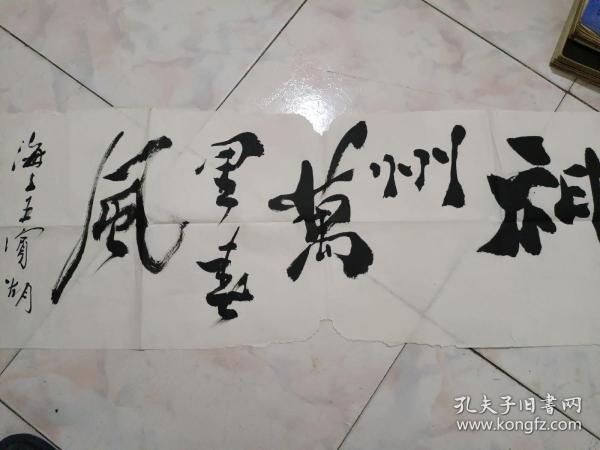 神州萬里春風
海上王寅湖
孔夫子旧書网
www.kongfz.com